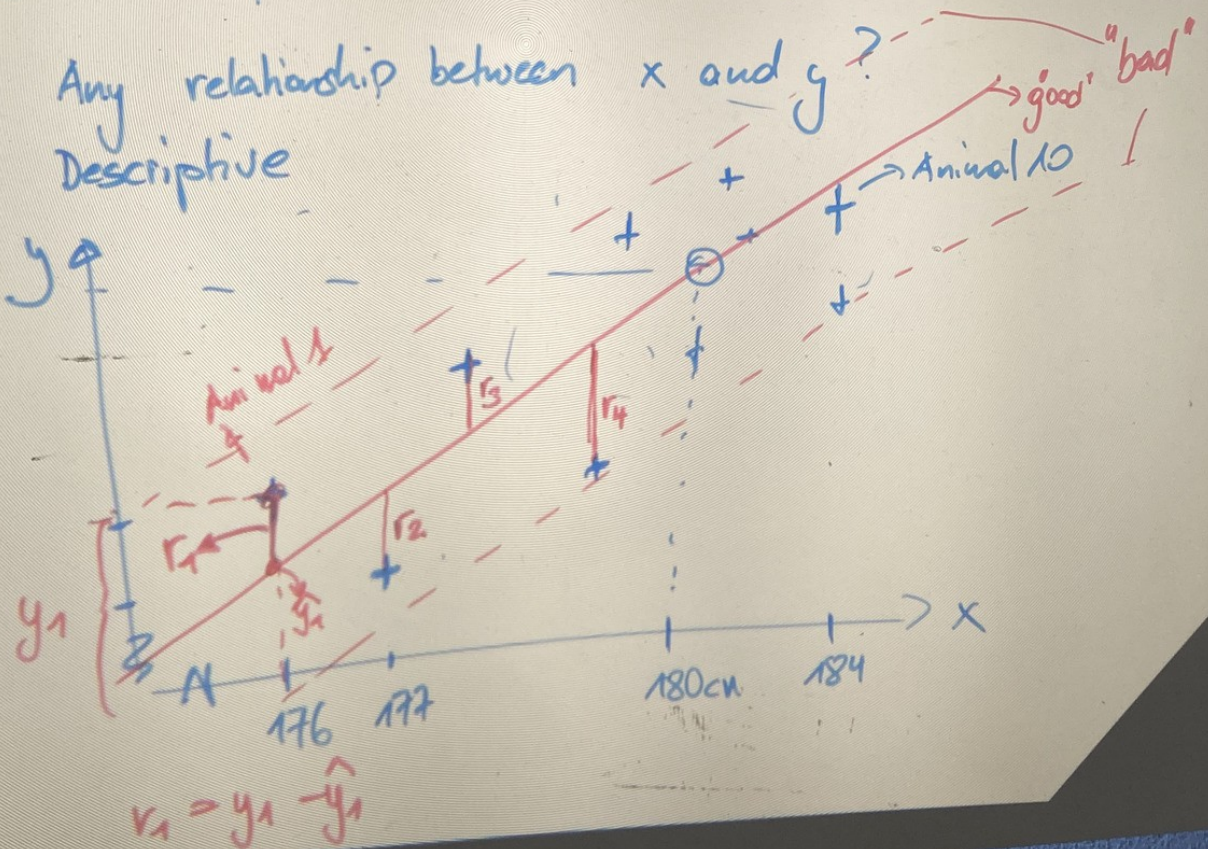 Any relationship between x and y?
"bad"
"good"
Descriptive
Animal 10
y
Animal 1
r3
r4
r1
r2
ŷ1
y1
x
176
177
180cm
184
r1 = y1 - ŷ1